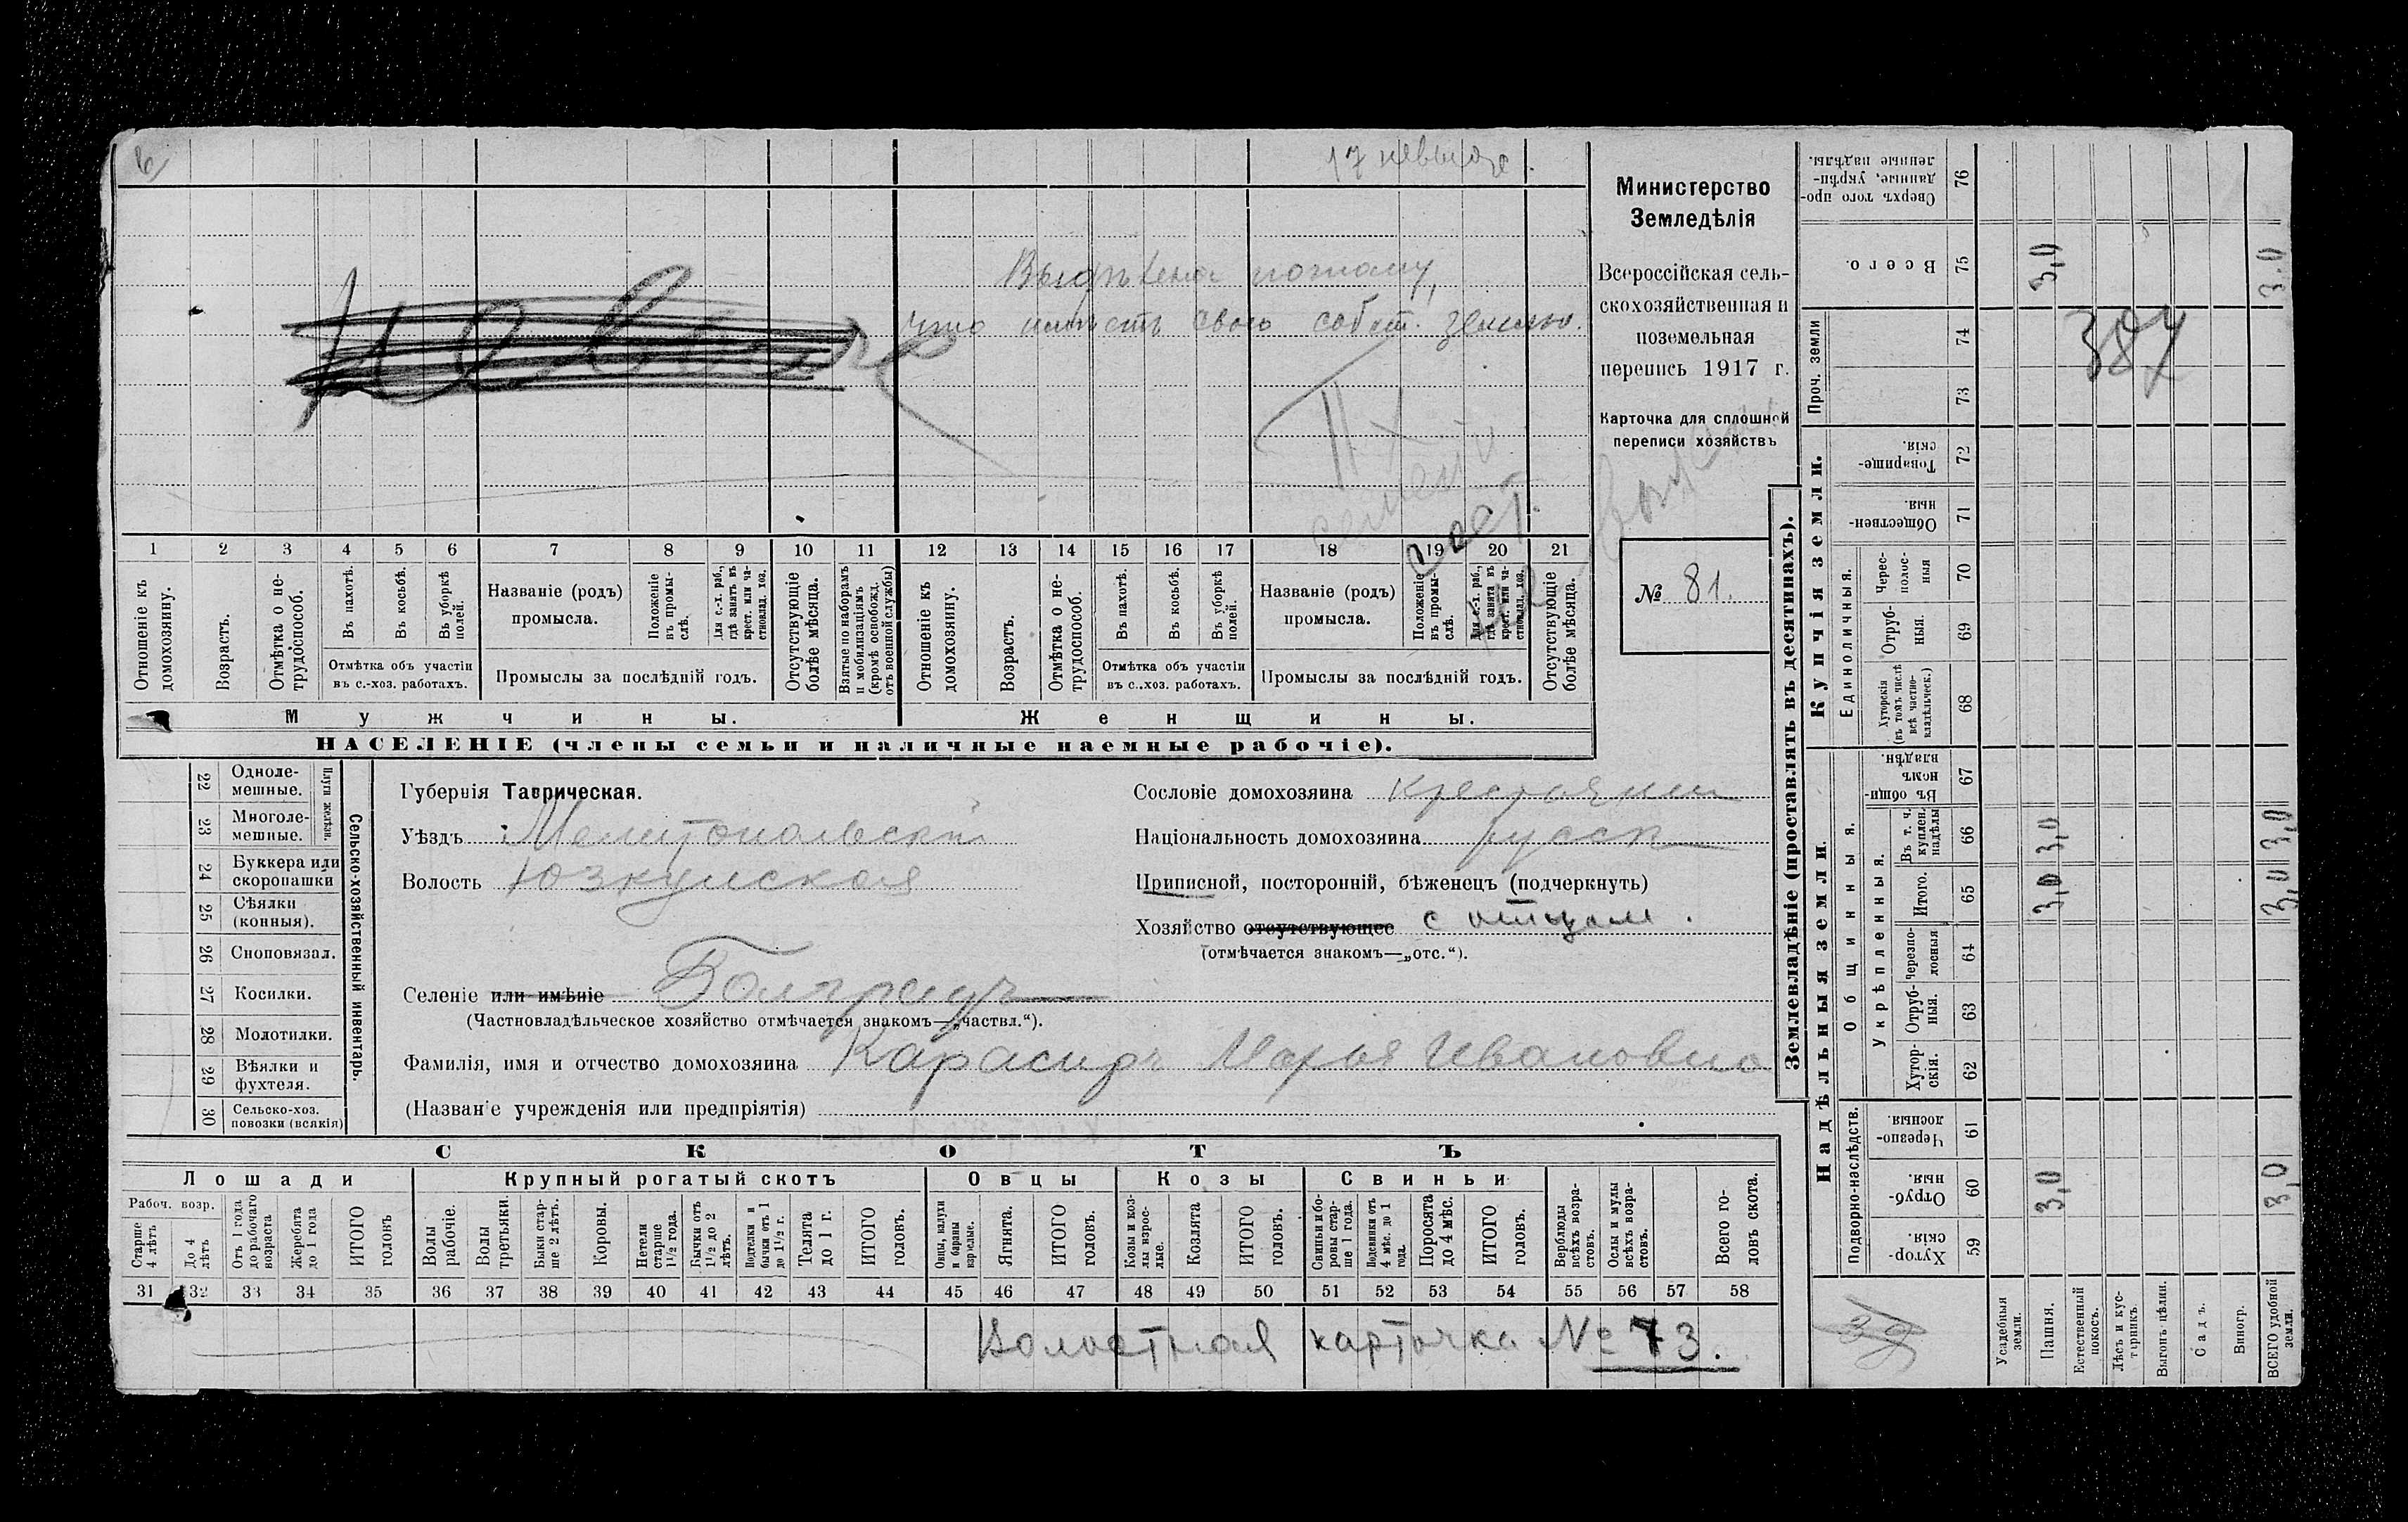 17 невыдѣ.
Выдѣлена потому,
что имѣетъ свою собст. землю.
Министерство
Земледѣлія
Всероссійская сель-
скохозяйственная и
поземельная
перепись 1917 г.
Карточка для сплошной
переписи хозяйствъ
№ 81.
1 2 3 4 5 6 7 8 9 10 11 12 13 14 15 16 17 18 19 20 21
Отношеніе къ домохозяину.
Возрастъ.
Отмѣтка о не-трудоспособ.
Въ пахотѣ.
Въ косьбѣ.
Въ уборкѣ полей.
Отмѣтка объ участіи
въ с.-хоз. работахъ.
Названіе (родъ)
промысла.
Положеніе въ промы-слѣ.
Для с.-х. раб., гдѣ занятъ въ крест. или ча-стновлад. хоз.
Промыслы за послѣдній годъ.
Отсутствующіе болѣе мѣсяца.
Взятые по наборамъ и мобилизаціямъ (кромѣ освобожд. отъ военной службы)
Отношеніе къ домохозяину.
Возрастъ.
Отмѣтка о не-трудоспособ.
Въ пахотѣ.
Въ косьбѣ.
Въ уборкѣ полей.
Отмѣтка объ участіи
въ с.-хоз. работахъ.
Названіе (родъ)
промысла.
Положеніе въ промы-слѣ.
Для с.-х. раб., гдѣ занята въ крест. или ча-стновлад. хоз.
Промыслы за послѣдній годъ.
Отсутствующіе болѣе мѣсяца.
Мужчины.
Женщины.
НАСЕЛЕНІЕ (члены семьи и наличные наемные рабочіе).
22 Одноле-мешные.
23 Многоле-мешные.
Плуги желѣзн.
24 Буккера или скоропашки
25 Сѣялки (конныя).
26 Сноповязал.
27 Косилки.
28 Молотилки.
29 Вѣялки и фухтеля.
30 Сельско-хоз. повозки (всякія)
Сельско-хозяйственный инвентарь.
Губернія Таврическая.
Уѣздъ Мелитопольскій
Волость Юзкуиская
Селеніе или имѣніе Болградъ
(Частновладѣльческое хозяйство отмѣчается знакомъ—„частвл.“).
Фамилія, имя и отчество домохозяина Карасидъ Марья Ивановна
(Названіе учрежденія или предпріятія)
Сословіе домохозяина крестьянин
Національность домохозяина русск
Приписной, посторонній, бѣженецъ (подчеркнуть)
Хозяйство отсутствующее с отцом.
(отмѣчается знакомъ—„отс.“).
СКОТЪ
Лошади
Крупный рогатый скотъ
Овцы
Козы
Свиньи
Рабоч. возр.
Старше 4 лѣтъ
До 4 лѣтъ
Отъ 1 года до рабочаго возраста
Жеребята до 1 года
ИТОГО головъ
Волы рабочіе.
Волы третьяки.
Быки стар-ше 2 лѣтъ.
Коровы.
Нетели старше 1½ года.
Бычки отъ 1½ до 2 лѣтъ.
Подтелки и бычки отъ 1 до 1½ г.
Телята до 1 г.
ИТОГО головъ.
Овцы, валухи и бараны взрослые.
Ягнята.
ИТОГО головъ.
Козы и коз-лы взрос-лые.
Козлята
ИТОГО головъ.
Свиньи и бо-ровы стар-ше 1 года.
Подсвинки отъ 4 мѣс. до 1 года.
Поросята до 4 мѣс.
ИТОГО головъ.
Верблюды всѣхъ возра-стовъ.
Ослы и мулы всѣхъ возра-стовъ.
Всего го-ловъ скота.
31 32 33 34 35 36 37 38 39 40 41 42 43 44 45 46 47 48 49 50 51 52 53 54 55 56 57 58
Волостная карточка № 73.
Землевладѣніе (проставлять въ десятинахъ).
Надѣльныя земли.
Купчія земли.
Проч. земли
Сверхъ того про-данные, укрѣп-ленные надѣлы. 76
Всего. 75
74
73
Товарище-скія. 72
Обществен-ныя. 71
Единоличныя.
Черес-полос-ныя 70
Отруб-ныя. 69
Хуторскія (въ томъ числѣ всѣ частно-владѣльческ.) 68
Въ общи-номъ владѣн. 67
Общинныя.
Укрѣпленныя.
Въ т. ч. куплен. надѣлы 66
Итого. 65
Черезпо-лосныя 64
Отруб-ныя. 63
Хутор-скія. 62
Подворно-наслѣдств.
Черезпо-лосныя 61
Отруб-ныя. 60
Хутор-скія. 59
Усадебныя земли.
Пашня.
Естественный покосъ.
Лѣсъ и кус-тарникъ.
Выгонъ цѣлин.
Садъ.
Виногр.
ВСЕГО удобной земли.
3,0 3,0 3,0 3,0
3,0 3,0 3,0 3.0
387
39